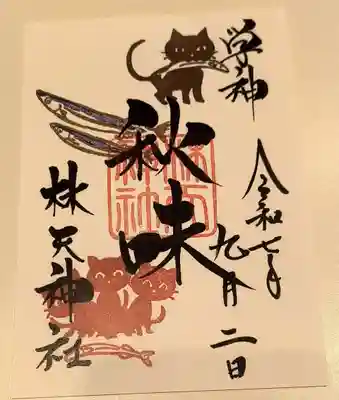 学神
令和七年
九月二日
秋味
林天神社